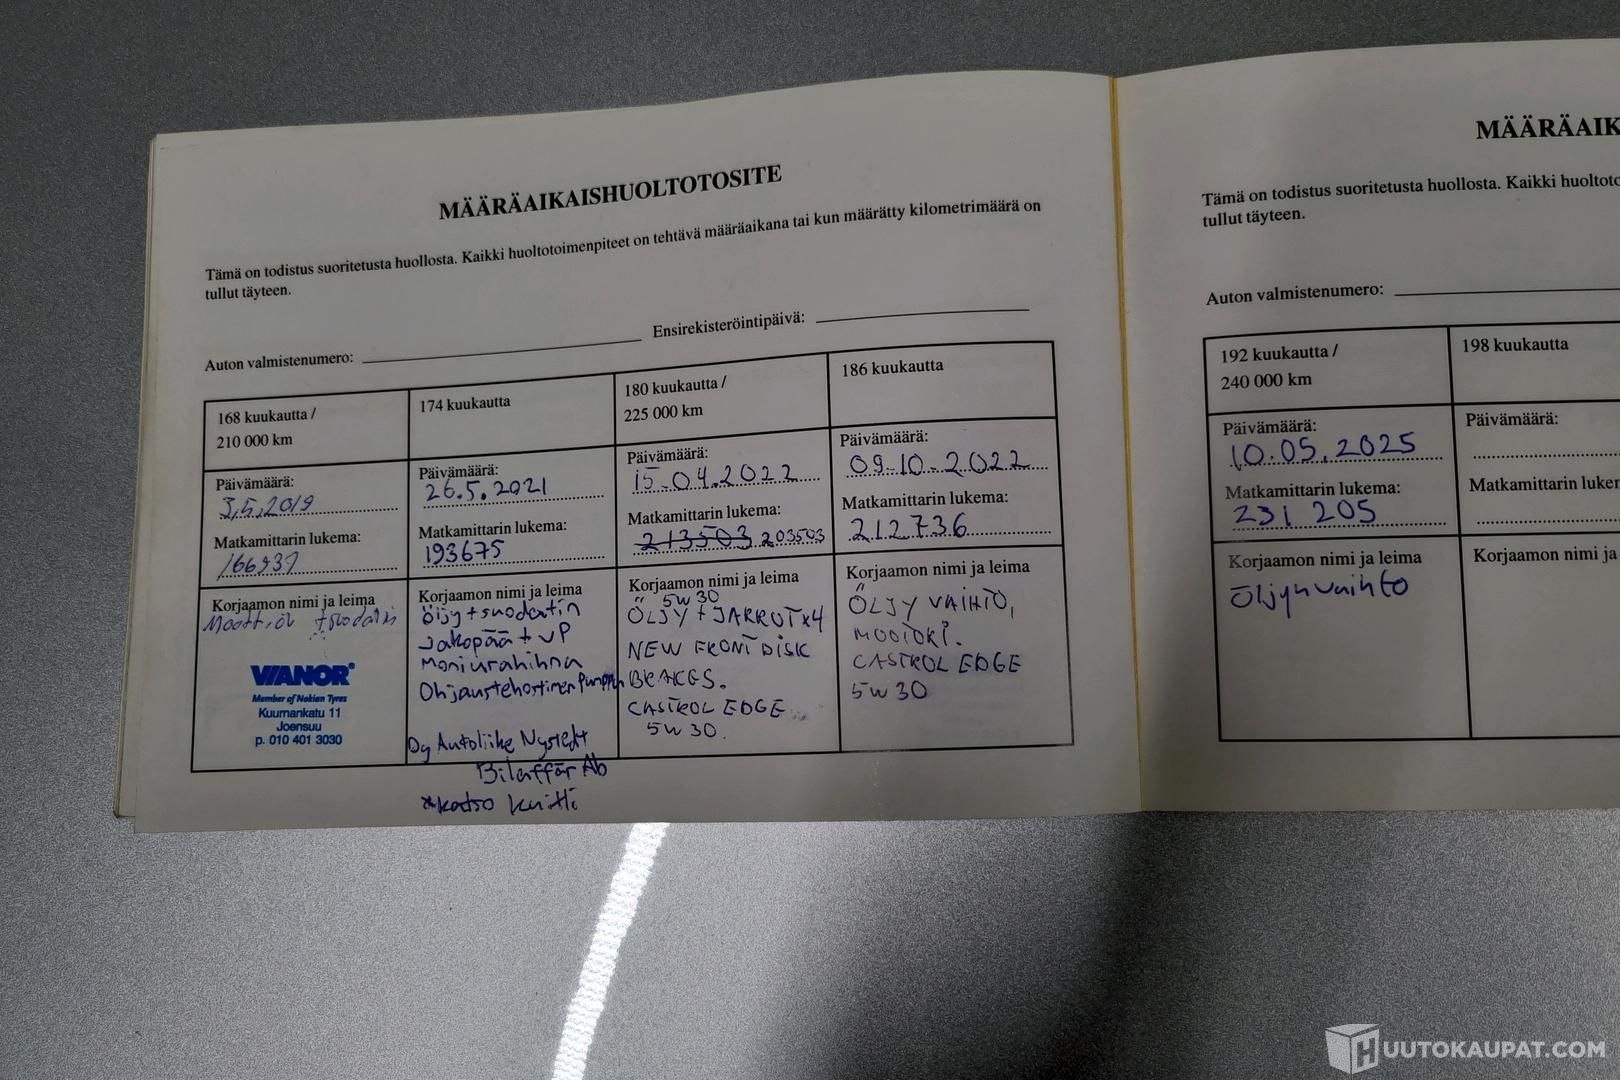 MÄÄRÄAIKAISHUOLTOTOSITE
Tämä on todistus suoritetusta huollosta. Kaikki huoltotoimenpiteet on tehtävä määräaikana tai kun määrätty kilometrimäärä on
tullut täyteen.
Auton valmistenumero:
Ensirekisteröintipäivä:
168 kuukautta /
210 000 km
Päivämäärä:
3.5.2019
Matkamittarin lukema:
166937
Korjaamon nimi ja leima
+suodatin
VIANOR
Member of Nokian Tyres
Kuurnankatu 11
Joensuu
p. 010 401 3030
174 kuukautta
Päivämäärä:
26.5.2021
Matkamittarin lukema:
193675
Korjaamon nimi ja leima
Öljy + suodatin
Jakopää + VP
Moniurahihna
Ohjaustehostimen pumppu
Oy Autoliike Nystedt
Bilaffär Ab
*katso kuitti
180 kuukautta /
225 000 km
Päivämäärä:
15.04.2022
Matkamittarin lukema:
213503 203503
Korjaamon nimi ja leima
5W30
ÖLJY + JARRUT x4
NEW FRONT DISK
BRAKES.
CASTROL EDGE
5W 30.
186 kuukautta
Päivämäärä:
09.10.2022
Matkamittarin lukema:
212736
Korjaamon nimi ja leima
ÖLJY VAIHTO,
MOOTORI.
CASTROL EDGE
5W 30
MÄÄRÄAIK
Tämä on todistus suoritetusta huollosta. Kaikki huoltoto
tullut täyteen.
Auton valmistenumero:
192 kuukautta /
240 000 km
Päivämäärä:
10.05.2025
Matkamittarin lukema:
231 205
Korjaamon nimi ja leima
Öljynvaihto
198 kuukautta
Päivämäärä:
Matkamittarin luker
Korjaamon nimi ja
HUUTOKAUPAT.COM